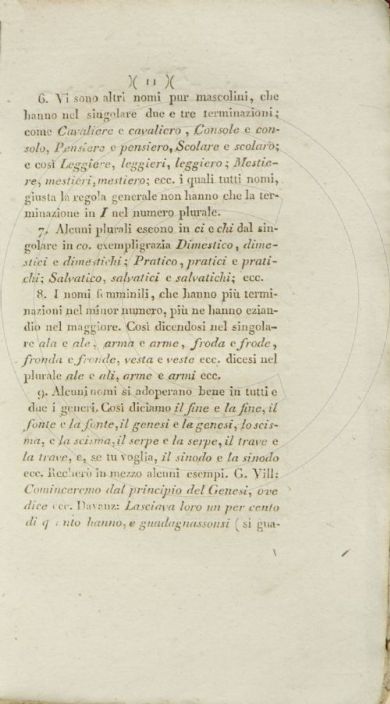 )( 11 )(
6. Vi sono altri nomi pur mascolini, che
hanno nel singolare due e tre terminazioni;
come Cavaliere e cavaliero, Console e con-
solo, Pensiere e pensiero, Scolare e scolaro;
e così Leggiere, leggieri, leggiero; Mestie-
re, mestieri, mestiero; ecc. i quali tutti nomi,
giusta la regola generale non hanno che la ter-
minazione in I nel numero plurale.
7. Alcuni plurali escono in ci e chi dal sin-
golare in co. exempligrazia Dimestico, dime-
stici e dimestichi; Pratico, pratici e prati-
chi; Salvatico, salvatici e salvatichi; ecc.
8. I nomi femminili, che hanno più termi-
nazioni nel minor numero, più ne hanno ezian-
dio nel maggiore. Così dicendosi nel singola-
re ala e ale, arma e arme, froda e frode,
fronda e fronde, vesta e veste ecc. dicesi nel
plurale ale e ali, arme e armi ecc.
9. Alcuni nomi si adoperano bene in tutti e
due i generi. Così diciamo il fine e la fine, il
fonte e la fonte, il genesi e la genesi, lo scis-
ma, e la scisma, il serpe e la serpe, il trave e
la trave, e, se tu voglia, il sinodo e la sinodo
ecc. Recherò in mezzo alcuni esempi. G. Vill:
Cominceremo dal principio del Genesi, ove
dice ecc. Davanz: Lasciava loro un per cento
di hanno, e guadagnassonsi (si gua-